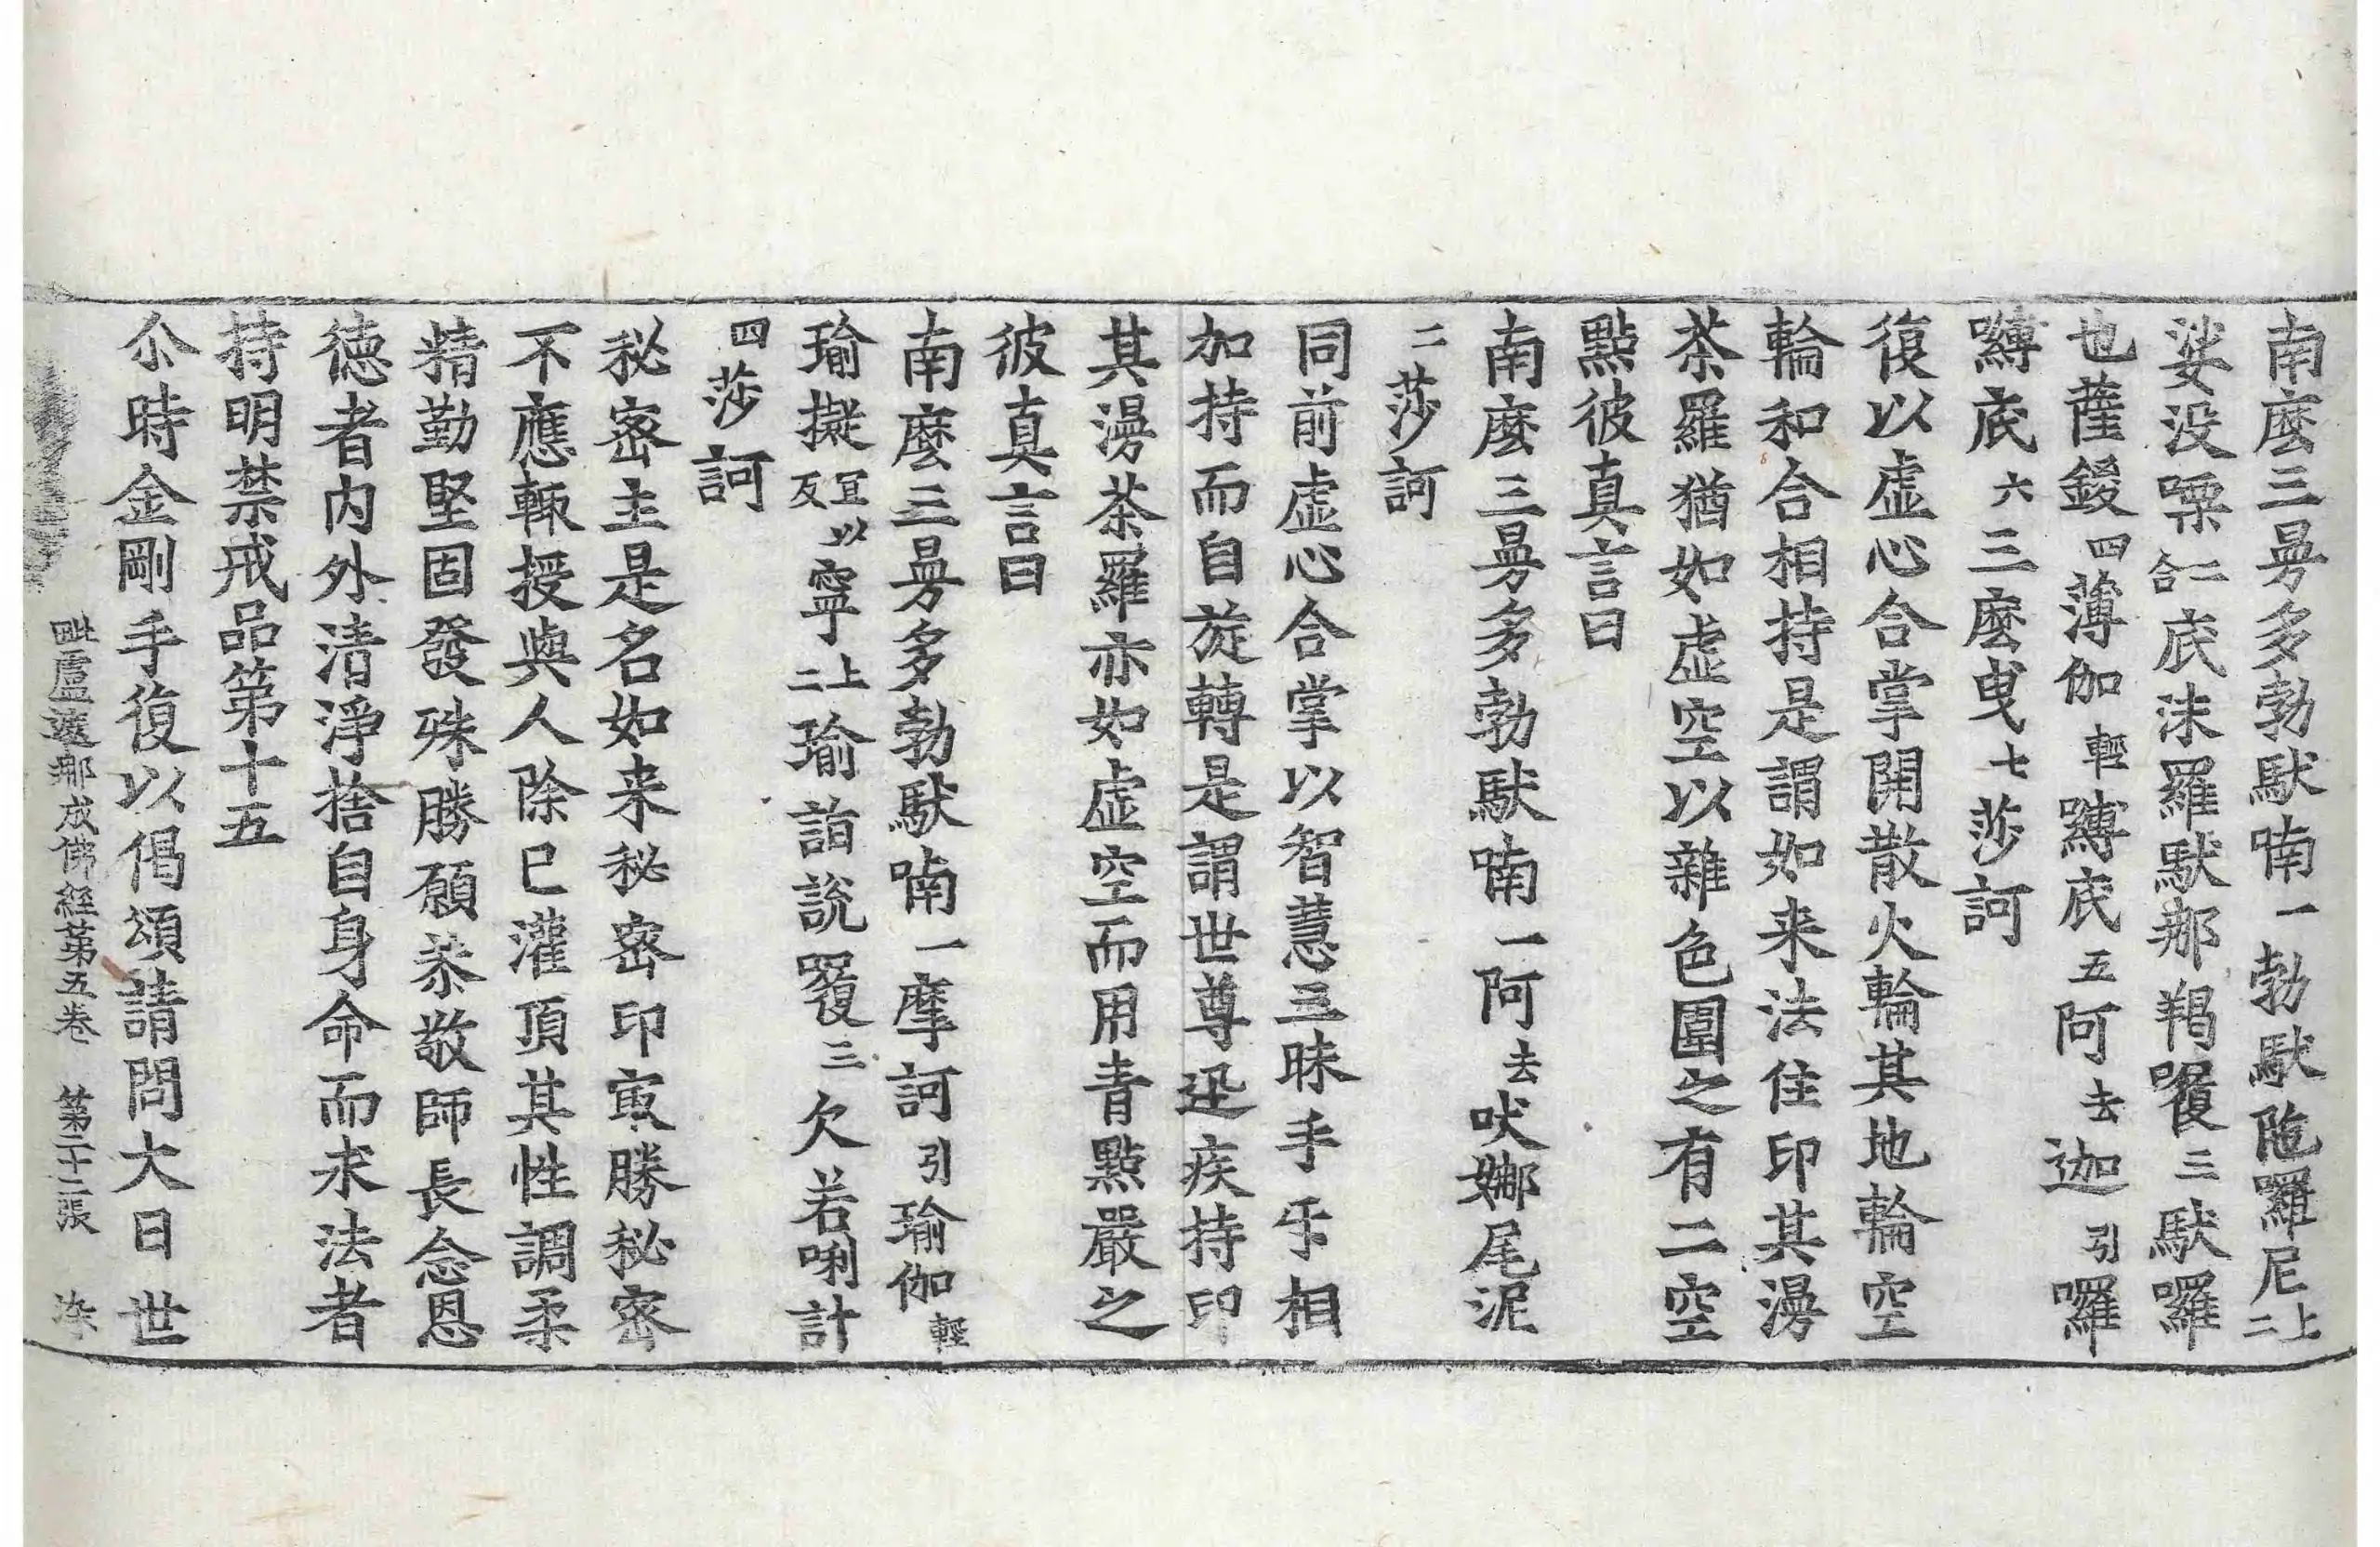 南麽三曼多勃馱喃一勃馱陁囉尼上二
娑没㗚二合底沫羅馱那羯㘌三馱囉
也薩鍐四薄伽輕嚩底五阿去迦引囉
嚩底六三麽曳七莎訶
復以虛心合掌開散火輪其地輪空
輪和合相持是謂如来法住印其漫
荼羅猶如虛空以雜色圍之有二空
點彼真言曰
南麽三曼多勃馱喃一阿去吠娜尾泥
二莎訶
同前虛心合掌以智慧三昧手㸦相
加持而自旋轉是謂世尊迅疾持印
其漫荼羅亦如虛空而用青點嚴之
彼真言曰
南麽三曼多勃馱喃一摩訶引瑜伽輕
瑜擬宜以反寧上二瑜詣說㘌三欠若唎計
四莎訶
秘密主是名如来秘密印寂勝秘密
不應輙授與人除已灌頂其性調柔
精勤堅固發殊勝願恭敬師長念恩
德者内外清淨捨自身命而求法者
持明禁戒品第十五
尒時金剛手復以偈頌請問大日世
毗盧遮那成佛經第五卷　第二十二張　染